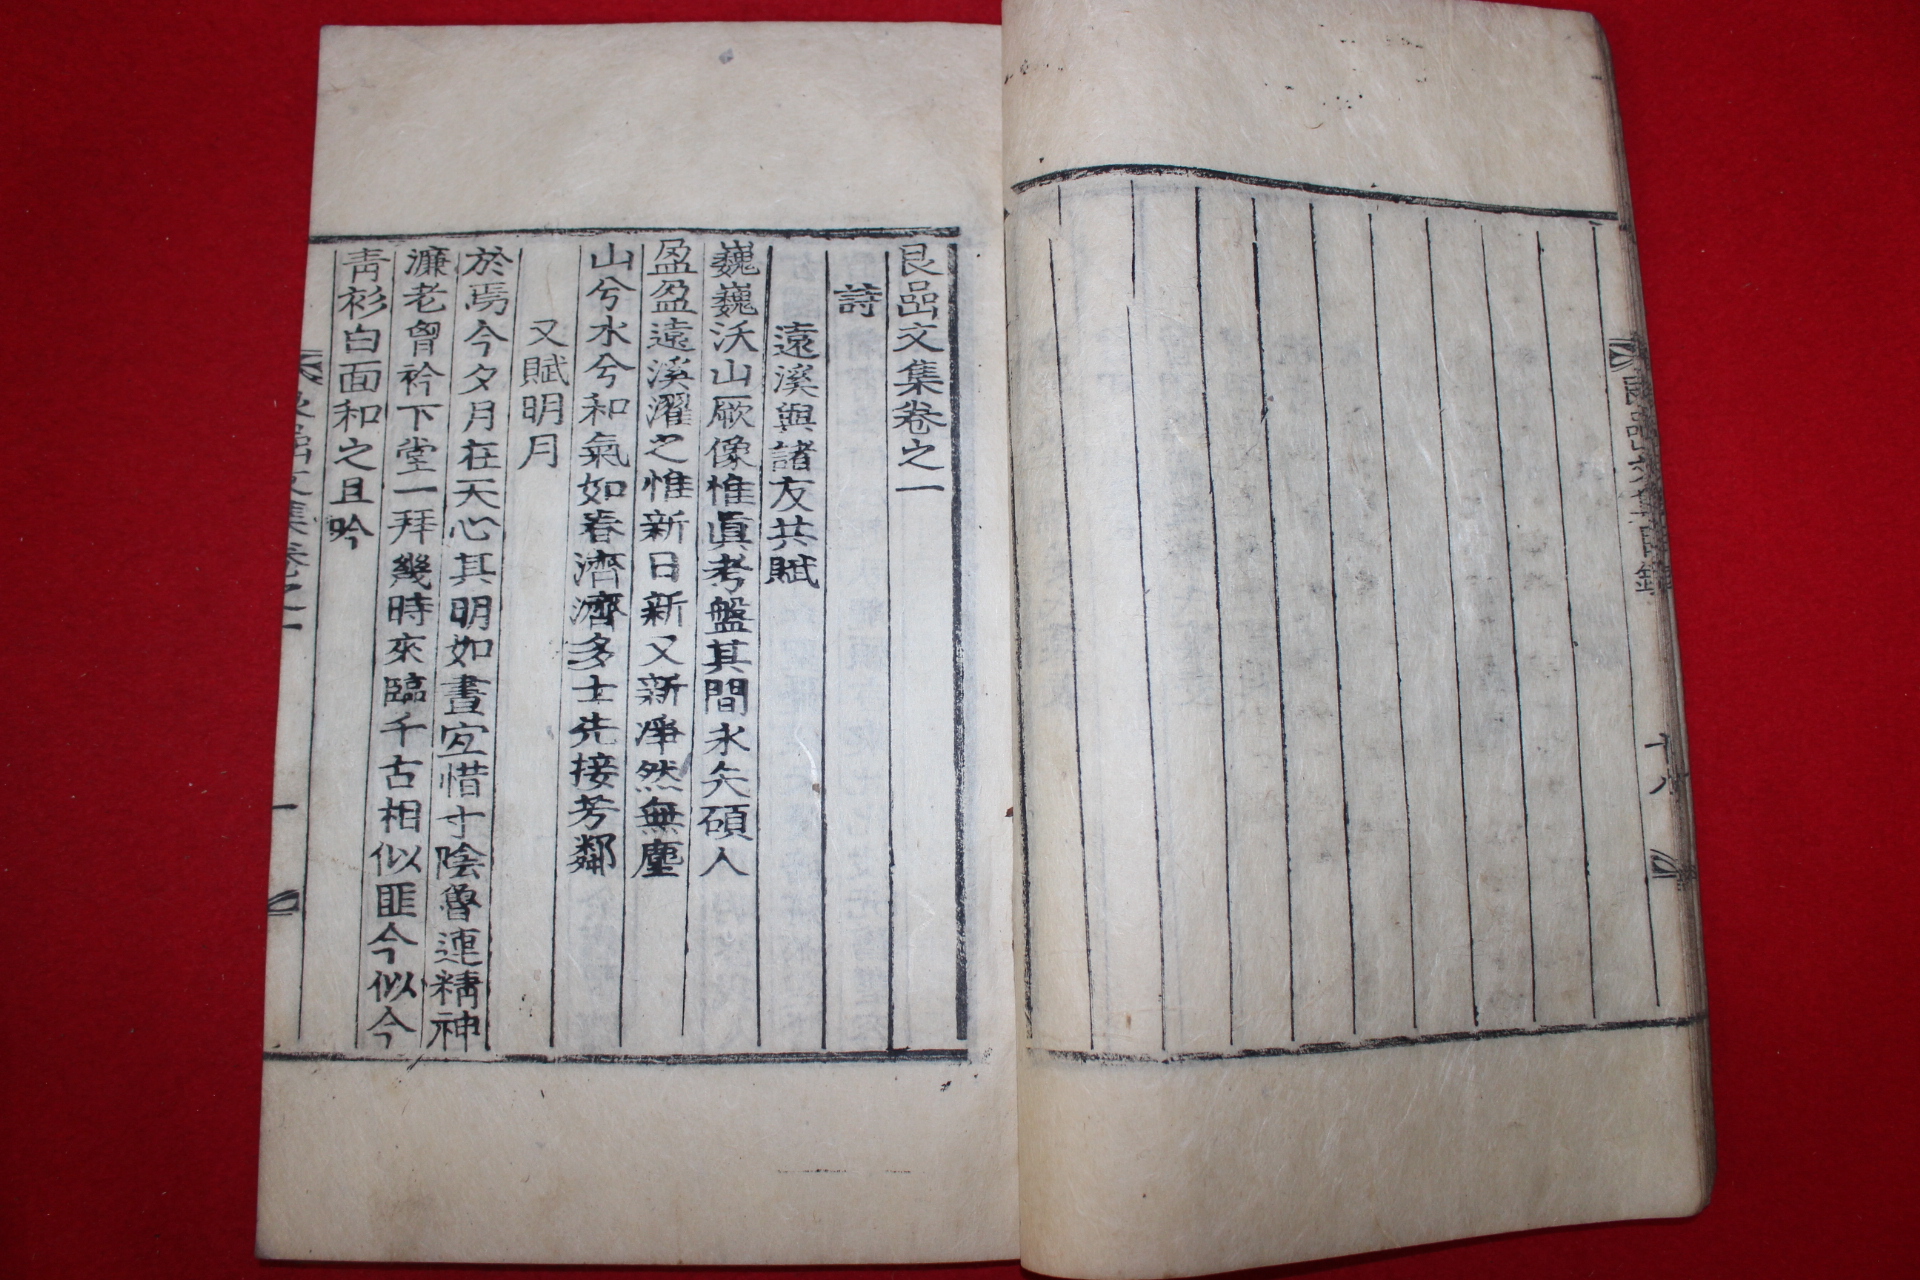 艮嵒文集卷之一
詩
遠溪與諸友共賦
巍巍沃山厥像惟眞考盤其間永矢碩人
盈盈遠溪濯之惟新日新又新凈然無塵
山兮水兮和氣如春濟濟多士先接芳鄰
又賦明月
於焉今夕月在天心其明如晝宐惜寸陰魯連精神
濂老胷衿下堂一拜幾時來臨千古相似匪今似今
靑衫白面和之且吟
文集卷之一
一
文集目錄
十八